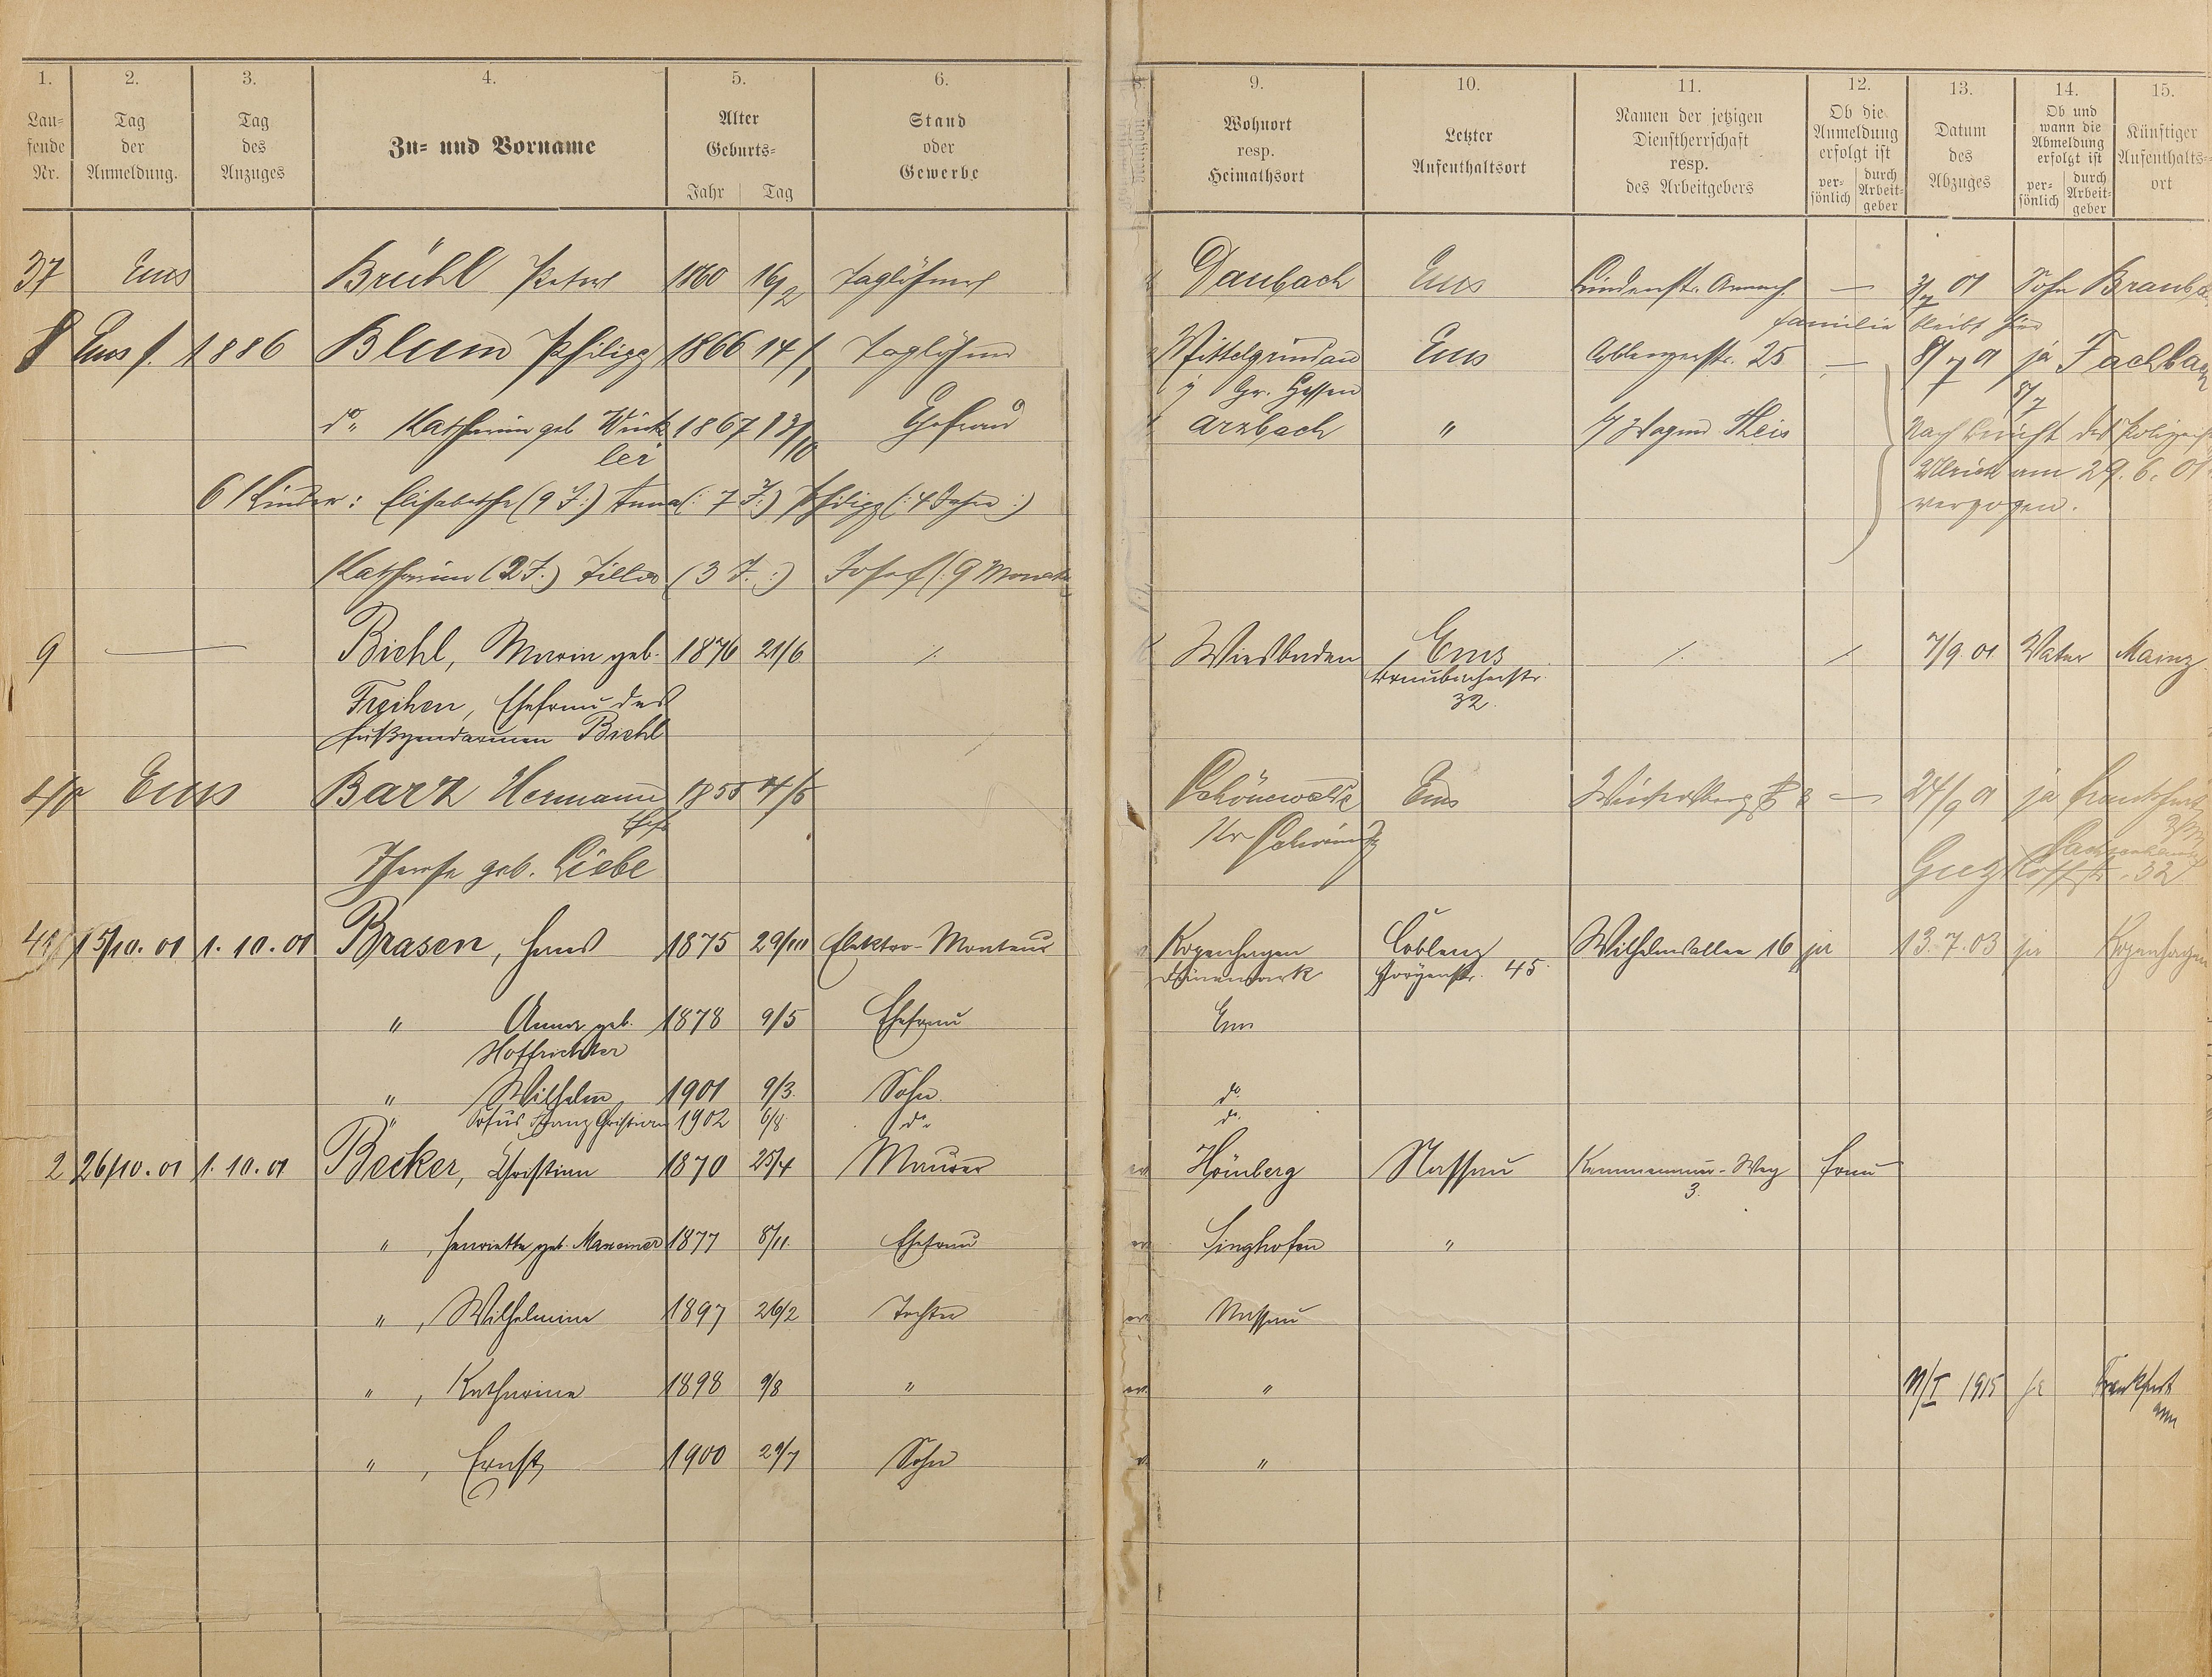 1. 2. 3. 4. 5. 6.
Lau=
fende
Nr.
Tag
der
Anmeldung.
Tag
des
Anzuges
Zu= und Vorname
Alter
Geburts=
Jahr Tag
Stand
oder
Gewerbe
9. 10. 11. 12. 13. 14. 15.
Wohnort
resp.
Heimathsort
Letzter
Aufenthaltsort
Namen der jetzigen
Dienstherrschaft
resp.
des Arbeitgebers
Ob die
Anmeldung
erfolgt ist
per=
sönlich
durch
Arbeit=
geber
Datum
des
Abzuges
Ob und
wann die
Abmeldung
erfolgt ist
per=
sönlich
durch
Arbeit=
geber
Künftiger
Aufenthalts=
ort
37 Ems Brühl Peter 1860 16/2 Taglöhner Daubach Ems — 3/7 01 Sohn
Familie bleibt hier
8 Ems f. 1886 Blum Philipp 1866 14/1 Taglöhner Mittelgründau Ems Coblenzerstr. 25 — 8/7 01 ja Fachbach
Gr. Hessen 8/7
do Katharina geb Wink 1867 13/10 Ehefrau Arzbach " Theis
ler
Nach Bericht des
Ulrich am 29. 6. 01
verzogen.
6 Kinder: Elisabethe (9 J:) Anna (: 7 J:) Philipp (: 4 Jahre :)
Katharina (2 J.) (3 J. :) Josef (: 9 Monate
9 — Biehl, Maria geb. 1876 21/6 ./. Wiesbaden Ems ./. ./. 7/9. 01 Vater Mainz
Braubacherstr.
32.
Freihen, Ehefrau des
Fußgendarmen Biehl
40 Ems Barz Hermann 1855 4/5 Schönewalde Ems Wintersberg 8 — 24/9 01 ja Frankfurt
Ehefr
Kr Schweinitz
a/M
Therese geb. Liebe
32
41 15/10. 01 1. 10. 01 Brasen, Hans 1875 29/10 Elektro-Monteur Kopenhagen Coblenz Wilhelmsallee 16 ja 13. 7. 03 ja Kopenhagen
Dänemark 45.
" Anna geb. 1878 9/5 Ehefrau Ems
Hoffrichter
" Wilhelm 1901 9/3. Sohn do.
" Sofus Franz Christian 1902 6/8 do. do.
2 26/10. 01 1. 10. 01 Becker, Christian 1870 25/4 Maurer Hömberg Nassau Kemmenauer-Weg Frau
3.
" , Henriette geb. Maxeiner 1877 8/11. Ehefrau Singhofen "
" , Wilhelmine 1897 26/2 Tochter Nassau
" , Katharine 1898 9/8 " " 11/I 1915 ja Frankfurt
a/m
" , Ernst 1900 29/7 Sohn "